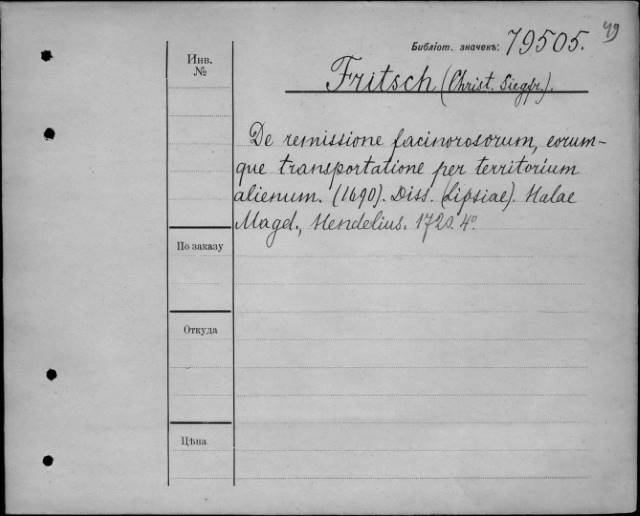 49
Библіот. значекъ: 79505.
Инв.
№
Fritsch (Christ. Siegfr.).
De remissione facinorosorum, eorum-
que transportatione per territorium
alienum. (1690). Diss. (Lipsiae). Halae
Magd., Hendelius. 4º.
По заказу
Откуда
Цѣна